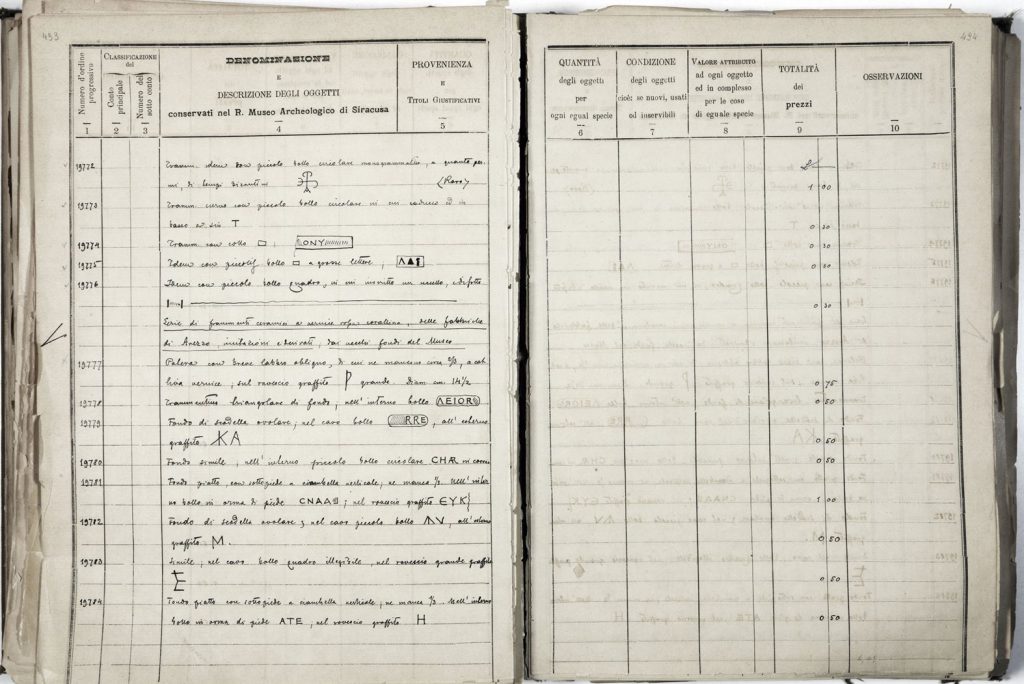 493
Numero d'ordine progressivo
CLASSIFICAZIONE
del
Conto principale
Numero del sotto conto
DENOMINAZIONE
E
DESCRIZIONE DEGLI OGGETTI
conservati nel R. Museo Archeologico di Siracusa
PROVENIENZA
E
TITOLI GIUSTIFICATIVI
1 2 3 4 5
19772 Framm. idem con piccolo bollo circolare monogrammatico, a quanto pa-
mi, di tempi bizantini (Raro)
19773 Framm. curvo con piccolo bollo circolare in cui caduceo ed in
basso a sin T
19774 Framm. con bollo ONY
19775 Idem con piccolo bollo a grosse lettere;
19776 Idem con piccolo bollo quadro, in cui iscritto un vasello,
Serie di frammenti ceramici a vernice rossa corallina, delle fabbriche
di Arezzo, imitazioni e derivati, dai vecchi fondi del Museo
19777 Patera con breve labbro obliquo, di cui ne mancano circa 2/3, a
vernice, sul rovescio graffito P grande. Diam cm. 14 1/2
19778 Frammentino triangolare di fondo; nell'interno bollo AEIOR
19779 Fondo di scodella ovolare; nel cavo bollo RRE, all'esterno
graffito KA
19780 Fondo simile, nell'interno piccolo bollo circolare
19781 Fondo piatto, con sottopiede a ciambella verticale; ne manca 1/3. Nell'inter
no bollo in orma di piede CNAA; nel rovescio graffito EYK
19782 Fondo di scodella ovolare; nel cavo piccolo bollo ΛV, all'esterno
graffito M.
19783 Simile, nel cavo bollo quadro illegibile, nel rovescio grande graffito
19784 Fondo piatto con sottopiede a ciambella verticale, ne manca 1/3. Nell'interno
bollo in orma di piede ATE; nel rovescio graffito H
494
QUANTITÀ
degli oggetti
per
ogni egual specie
CONDIZIONE
degli oggetti
cioè: se nuovi, usati
od inservibili
VALORE ATTRIBUITO
ad ogni oggetto
ed in complesso
per le cose
di eguale specie
TOTALITÀ
dei
prezzi
OSSERVAZIONI
6 7 8 9 10
1 00
0 30
0 30
0 30
0 30
0 75
0 50
0 50
0 50
1 00
0 50
0 50
0 50